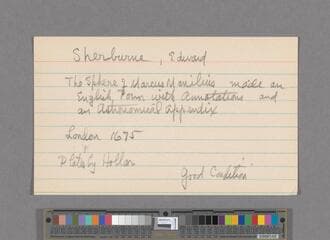 Sherburne, Edward
The Sphere of Marcus Manilius made an
English Poem with Annotations and
an Astronomical Appendix
London 1675
Plates by Hollar
"Good Condition"